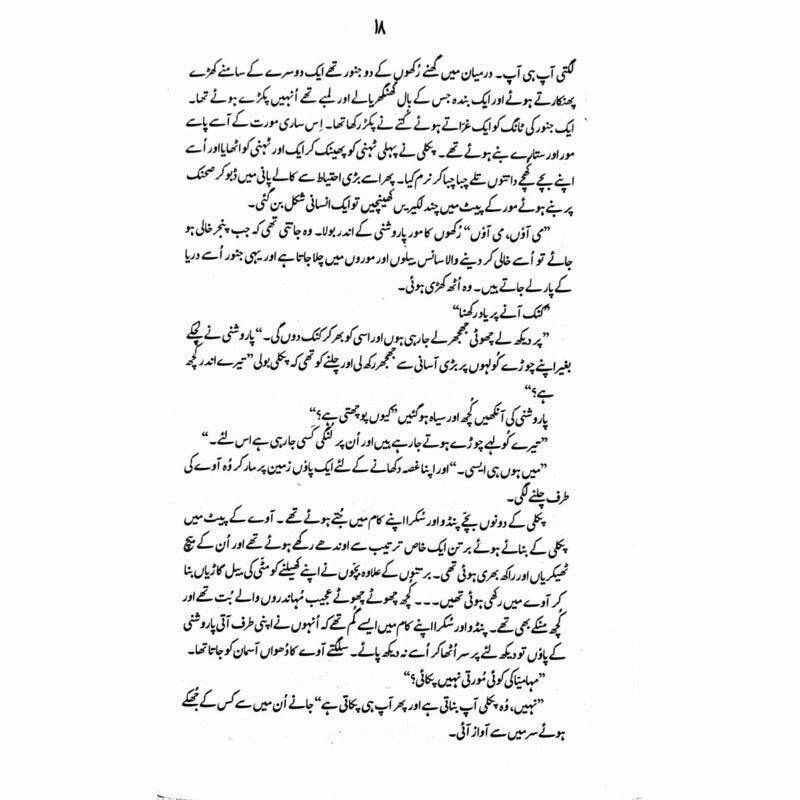 ۱۸
لگتی آپ ہی آپ۔ درمیان میں گھنے رُکھوں کے دو جنور تھے ایک دوسرے کے سامنے کھڑے
پھنکارتے ہوئے اور ایک بندہ جس کے بال گھنگھریالے اور لمبے تھے اُنہیں پکڑے ہوئے تھا۔
ایک جنور کی ٹانگ کو ایک غرّاتے ہوئے کُتے نے پکڑ رکھا تھا۔ اِس ساری مورت کے آسے پاسے
مور اور ستارے بنے ہوئے تھے۔ پکلی نے پہلی ٹہنی کو پھینک کر ایک اور ٹہنی کو اٹھایا اور اُسے
اپنے بچے کھچے دانتوں تلے چبا چبا کر نرم کیا۔ پھر اسے بڑی احتیاط سے کالے پانی میں ڈبو کر صحنک
پر بنے ہوئے مور کے پیٹ میں چند لکیریں کھینچیں تو ایک انسانی شکل بن گئی۔
”می آؤں، می آؤں“ رُکھوں کا مور پاروشنی کے اندر بولا۔ وہ جانتی تھی کہ جب پنجر خالی ہو
جائے تو اُسے خالی کر دینے والا سانس بیلوں اور موروں میں چلا جاتا ہے اور یہی جنور اُسے دریا
کے پار لے جاتے ہیں۔ وہ اُٹھ کھڑی ہوئی۔
”کنک آنے پر یاد رکھنا“
”پر دیکھ لے چھوٹی جھجھر لے جا رہی ہوں اور اسی کو بھر کر کنک دوں گی۔“ پاروشنی نے لچکے
بغیر اپنے چوڑے کُولہوں پر بڑی آسانی سے جھجھر رکھ لی اور چلنے کو تھی کہ پکلی بولی ”تیرے اندر کُچھ
ہے؟“
پاروشنی کی آنکھیں کُچھ اور سیاہ ہو گئیں ”کیوں پوچھتی ہے؟“
”تیرے کُولہے چوڑے ہوتے جا رہے ہیں اور اُن پر لُنگی کَسی جا رہی ہے اس لئے۔“
”میں ہوں ہی ایسی۔“ اور اپنا غصہ دکھانے کے لئے ایک پاؤں زمین پر مار کر وُہ آوے کی
طرف چلنے لگی۔
پکلی کے دونوں بچّے پنڈو اور سُکرا اپنے کام میں جُتے ہوئے تھے۔ آوے کے پیٹ میں
پکلی کے بنائے ہوئے برتن ایک خاص ترتیب سے اوندھے رکھے ہوئے تھے اور اُن کے بیچ
ٹھیکریاں اور راکھ بھری ہوئی تھی۔ برتنوں کے علاوہ بچّوں نے اپنے کھیلنے کو مٹّی کی بیل گاڑیاں بنا
کر آوے میں رکھی ہوئی تھیں۔۔۔ کُچھ چھوٹے چھوٹے عجیب مُہاندروں والے بُت تھے اور
کُچھ منکے بھی تھے۔ پنڈو اور سُکرا اپنے کام میں ایسے گُم تھے کہ اُنہوں نے اپنی طرف آتی پاروشنی
کے پاؤں تو دیکھ لئے پر سر اُٹھا کر اُسے نہ دیکھ پائے۔ سلگتے آوے کا دُھواں آسمان کو جاتا تھا۔
”مہامیّا کی کوئی مُورتی نہیں پکائی؟“
”نہیں، وُہ پکلی آپ بناتی ہے اور پھر آپ ہی پکاتی ہے“ جانے اُن میں سے کس کے جُھکے
ہوئے سر میں سے آواز آئی۔